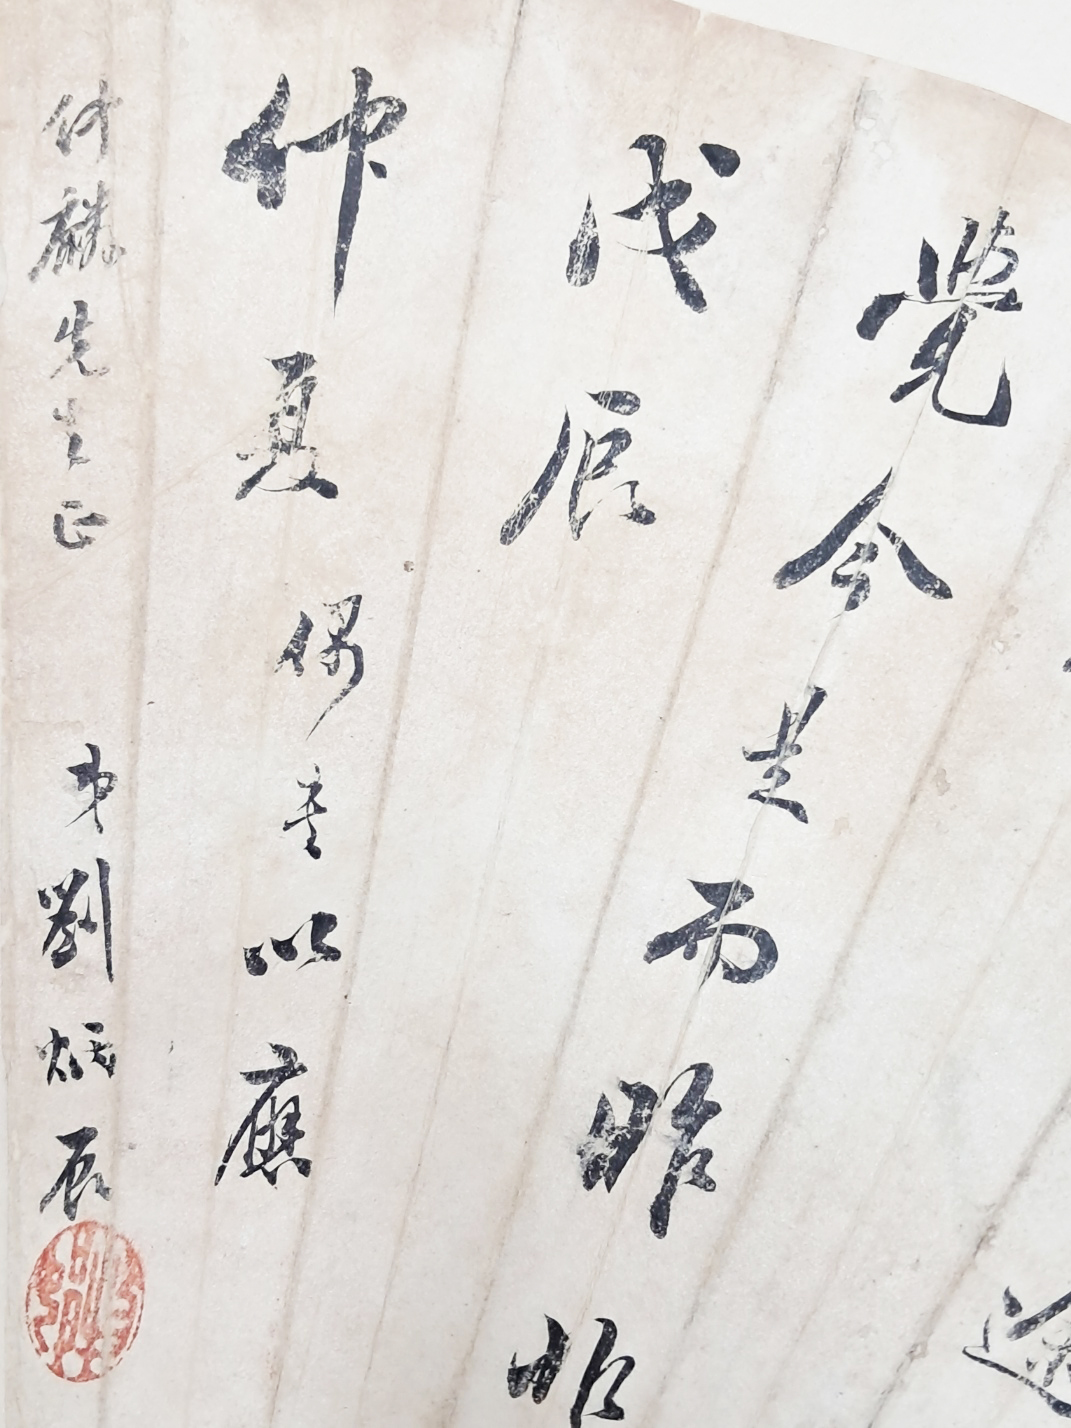 途
覺今是而昨非
戊辰
仲夏偶書以應
麟先生正 弟劉炳辰